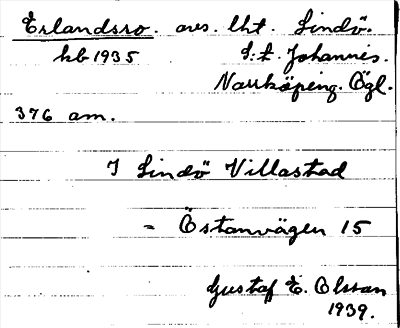 Erlandsro. avs. lht. Lindö.
kb 1935 S:t Johannis.
Norrköping. Ögl.
376 am.
I Lindö Villastad
= Östanvägen 15
Gustaf E. Olsson
1939.